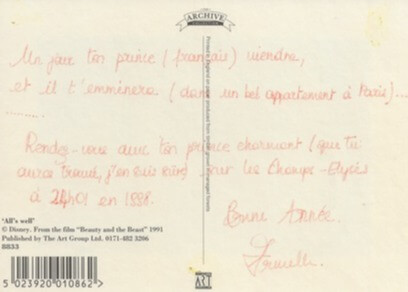 THE
ARCHIVE
COLLECTION
Un jour ton prince (français) viendra,
et il t'emminera (dans un bel appartement à Paris)....
........
Rendez-vous avec ton prince charmant (que tu
auras trouvé, j'en suis sûre) sur les Champs-Elysées
à 24h01 en 1998.
Bonne Année.
'All's well'
© Disney. From the film "Beauty and the Beast" 1991
Published by The Art Group Ltd. 0171-482 3206
8833
5 023920 010862 >
ART